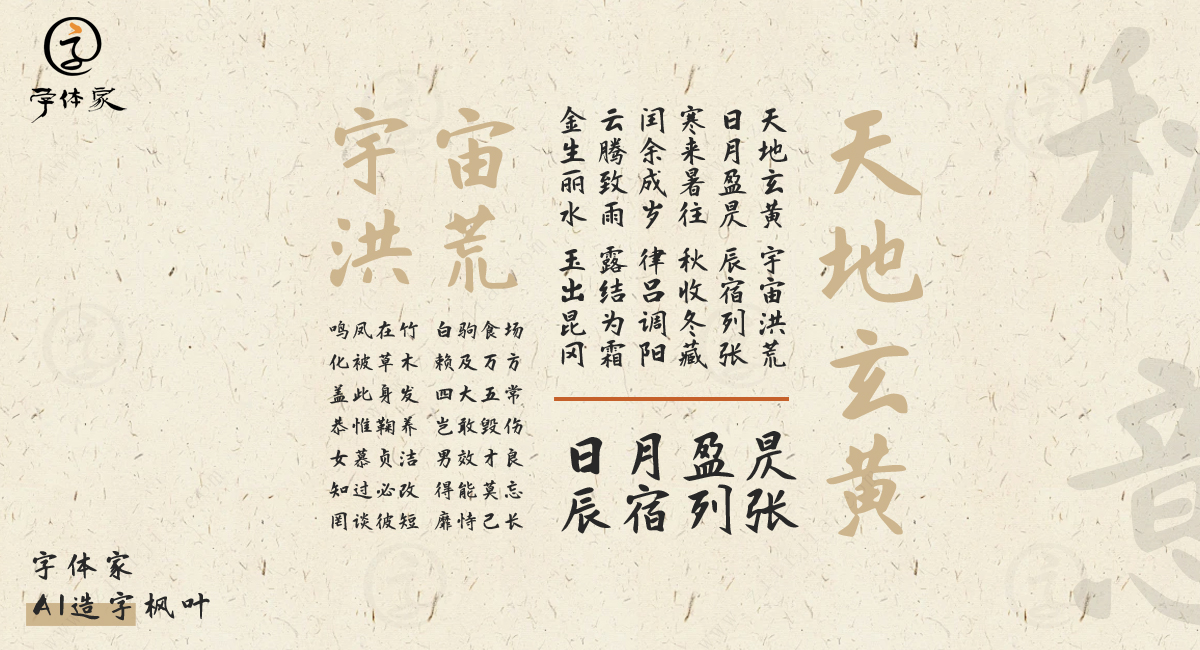 字体家
天地玄黄
天地玄黄 宇宙洪荒
日月盈昃 辰宿列张
寒来暑往 秋收冬藏
闰余成岁 律吕调阳
云腾致雨 露结为霜
金生丽水 玉出昆冈
日月盈昃
辰宿列张
宇宙
洪荒
鸣凤在竹 白驹食场
化被草木 赖及万方
盖此身发 四大五常
恭惟鞠养 岂敢毁伤
女慕贞洁 男效才良
知过必改 得能莫忘
罔谈彼短 靡恃己长
秋意
字体家
AI造字枫叶